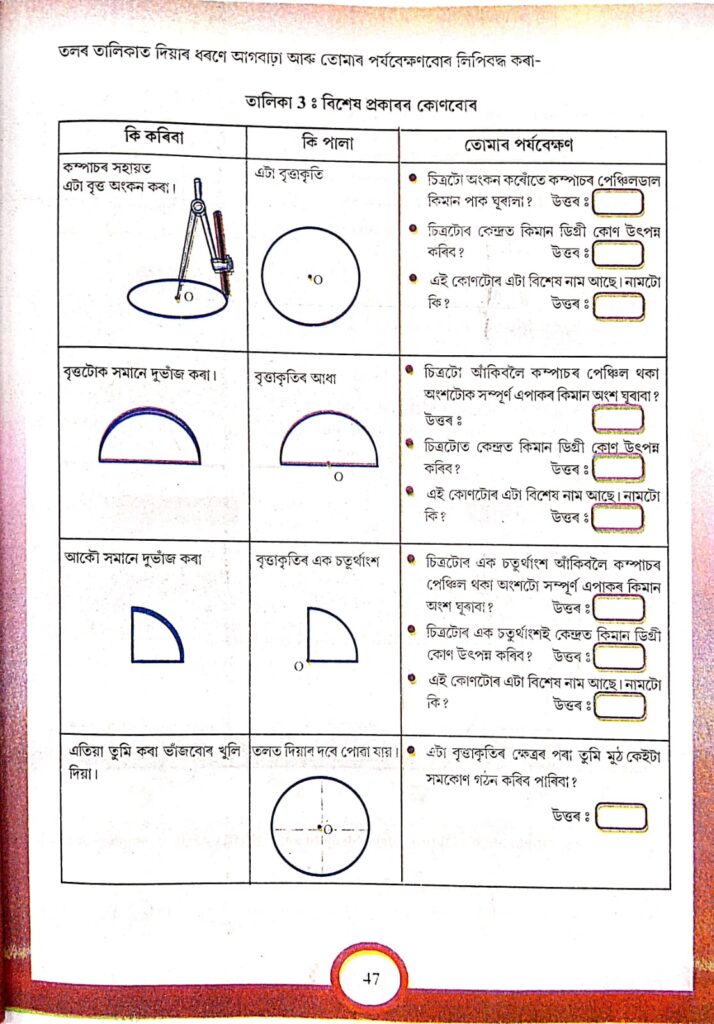 তলৰ তালিকাত দিয়াৰ ধৰণে আগবাঢ়া আৰু তোমাৰ পৰ্যবেক্ষণবোৰ লিপিবদ্ধ কৰা-
তালিকা 3 ঃ বিশেষ প্ৰকাৰৰ কোণবোৰ
কি কৰিবা
কি পালা
তোমাৰ পৰ্যবেক্ষণ
কম্পাচৰ সহায়ত
এটা বৃত্ত অংকন কৰা।
O
এটা বৃত্তাকৃতি
O
চিত্ৰটো অংকন কৰোঁতে কম্পাচৰ পেঞ্চিলডাল
কিমান পাক ঘূৰালা? উত্তৰ ঃ
চিত্ৰটোৰ কেন্দ্ৰত কিমান ডিগ্ৰী কোণ উৎপন্ন
কৰিব? উত্তৰ ঃ
এই কোণটোৰ এটা বিশেষ নাম আছে। নামটো
কি? উত্তৰ ঃ
বৃত্তটোক সমানে দুভাঁজ কৰা।
বৃত্তাকৃতিৰ আধা
O
চিত্ৰটো আঁকিবলৈ কম্পাচৰ পেঞ্চিল থকা
অংশটোক সম্পূৰ্ণ এপাকৰ কিমান অংশ ঘূৰাবা?
উত্তৰ ঃ
চিত্ৰটোত কেন্দ্ৰত কিমান ডিগ্ৰী কোণ উৎপন্ন
কৰিব? উত্তৰ ঃ
এই কোণটোৰ এটা বিশেষ নাম আছে। নামটো
কি? উত্তৰ ঃ
আকৌ সমানে দুভাঁজ কৰা
বৃত্তাকৃতিৰ এক চতুৰ্থাংশ
O
চিত্ৰটোৰ এক চতুৰ্থাংশ আঁকিবলৈ কম্পাচৰ
পেঞ্চিল থকা অংশটো সম্পূৰ্ণ এপাকৰ কিমান
অংশ ঘূৰাবা? উত্তৰ ঃ
চিত্ৰটোৰ এক চতুৰ্থাংশই কেন্দ্ৰত কিমান ডিগ্ৰী
কোণ উৎপন্ন কৰিব? উত্তৰ ঃ
এই কোণটোৰ এটা বিশেষ নাম আছে। নামটো
কি? উত্তৰ ঃ
এতিয়া তুমি কৰা ভাঁজবোৰ খুলি
দিয়া।
তলত দিয়াৰ দৰে পোৱা যায়।
O
এটা বৃত্তাকৃতিৰ ক্ষেত্ৰৰ পৰা তুমি মুঠ কেইটা
সমকোণ গঠন কৰিব পাৰিবা?
উত্তৰ ঃ
47